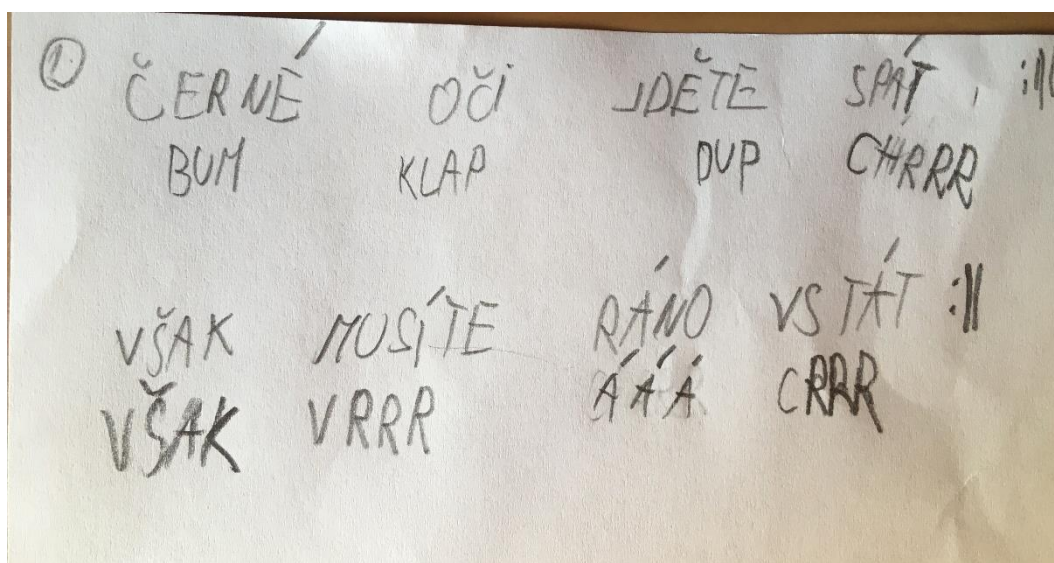 1. ČERNÉ OČI JDĚTE SPÁT, :||
BUM KLAP DUP CHRRR
VŠAK MUSÍTE RÁNO VSTÁT :||
VŠAK VRRR ÁÁÁ CRRR